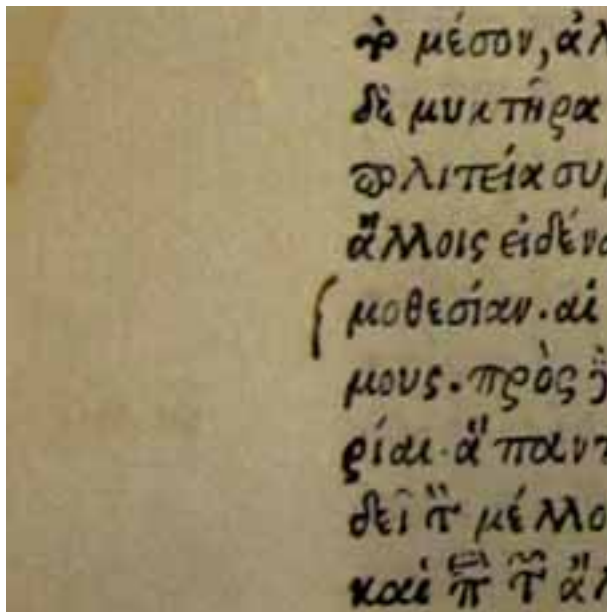 μέσον, ἀλ
δὲ μυκτῆρα
πολιτεία συ
ἄλλοις εἰδένα
μοθεσίαν. αἱ
μους. πρὸς
ρίαι. ἅπαντ
δεῖ μέλλο
καὶ